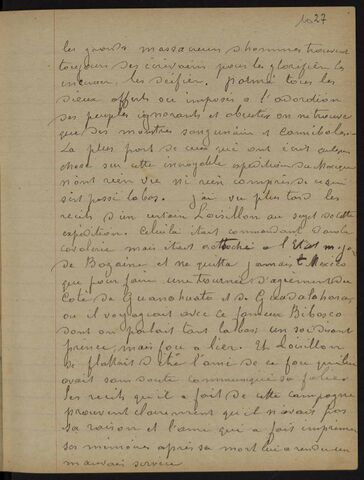 1027
les grands massacreurs d'hommes trouvent
toujours des écrivains pour les glorifier les
encenser les déifier. parmi tous les
dieux offerts ou imposés a l'adoration
des peuples ignorants et abrutis on ne trouve
que des monstres sanguinaires et cannibales.
La plus part de ceux qui ont écrit quelque
chose sur cette incroyable expédition du Mexique
n'ont rien vu ni rien compris de ce qui
s'est passé labas. J'ai vu plus tard les
recits d'un certain Loisillon au sujet de cette
expédition. Celui la était commandant dans la
cavalerie mais etait attaché a l'état major
de Bazaine et ne quitta jamais Mexico
que pour faire une tournée d'agrement du
Coté de Guanahuato et de Guadalahara
ou il voyageait avec ce fameux Bibesco
dont on parlait tant labas un soi disant
prince mais fou a lier. Ce Loisillon
se flattait d'etre l'ami de ce fou qui lui
avait sans doute communiqué sa folie.
Les recits qu'il a fait de cette campagne
prouvent clairement qu'il n'avait pas
sa raison et l'ami qui a fait imprimer
ses mémoires après sa mort lui a rendu un
mauvais service